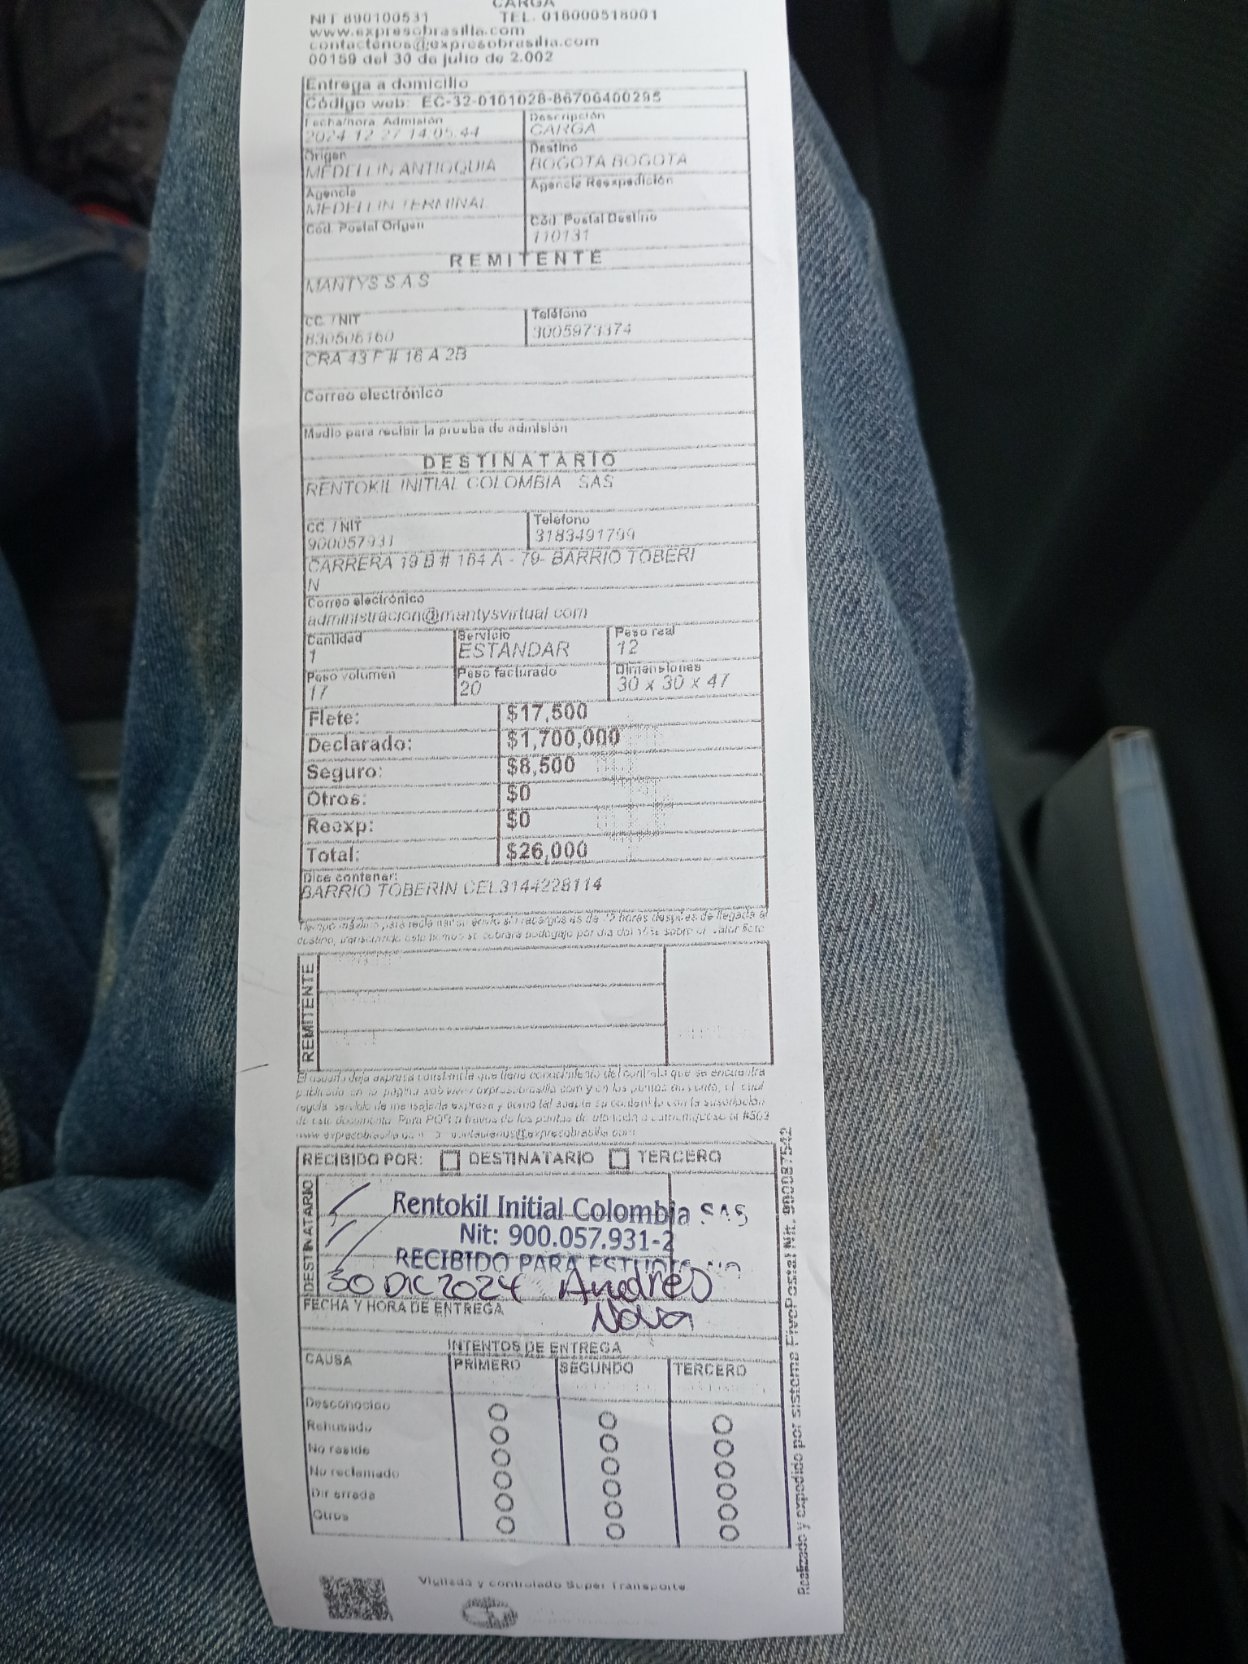 CARGA
NIT 890100531 TEL. 018000518001
www.expresobrasilia.com
contactenos@expresobrasilia.com
00159 del 30 de julio de 2.002
Entrega a domicilio
Código web: EC-32-0101028-86706400295
Fecha/hora Admisión Descripción
2024 12 27 14:05:44 CARGA
Origen Destino
MEDELLIN ANTIOQUIA BOGOTA BOGOTA
Agencia Agencia Reexpedición
MEDELLIN TERMINAL
Cód. Postal Origen Cód. Postal Destino
110131
REMITENTE
MANTYS S A S
CC. / NIT Teléfono
830506160 3005973374
CRA 43 F # 16 A 2B
Correo electrónico
Medio para recibir la prueba de admisión
DESTINATARIO
RENTOKIL INITIAL COLOMBIA SAS
CC. / NIT Teléfono
900057931 3183491799
CARRERA 19 B # 164 A - 79- BARRIO TOBERI
N
Correo electrónico
administracion@mantysvirtual.com
Cantidad Servicio Peso real
1 ESTANDAR 12
Peso volumen Peso facturado Dimensiones
17 20 30 x 30 x 47
Flete: $17,500
Declarado: $1,700,000
Seguro: $8,500
Otros: $0
Reexp: $0
Total: $26,000
Dice contener:
BARRIO TOBERIN CEL3144228114
REMITENTE
RECIBIDO POR: DESTINATARIO TERCERO
DESTINATARIO
Rentokil Initial Colombia SAS
Nit: 900.057.931-2
RECIBIDO PARA ESTUDIO
30 DIC 2024 Andres
Nova
FECHA Y HORA DE ENTREGA
INTENTOS DE ENTREGA
CAUSA PRIMERO SEGUNDO TERCERO
Desconocido
Rehusado
No reside
No reclamado
Dir errada
Otros
Vigilado y controlado Super Transporte
Realizado y expedido por sistema FivePostal Nit. 900087542